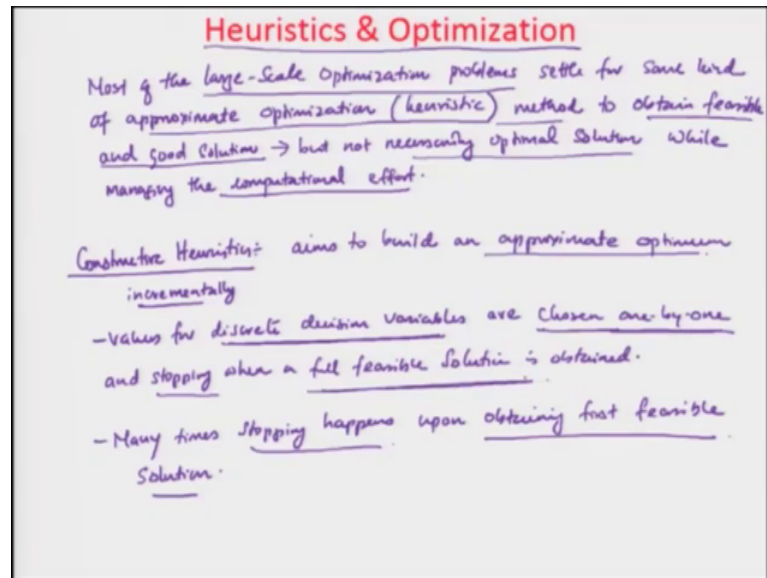 Heuristics & Optimization
Most of the large-Scale Optimization problems settle for some kind
of approximate optimization (heuristic) method to obtain feasible
and good Solution → but not necessarily optimal Solution while
managing the computational effort.
Constructive Heuristics:- aims to build an approximate optimum
incrementally
- values for discrete decision variables are chosen one-by-one
and stopping when a full feasible Solution is obtained.
- Many times stopping happens upon obtaining first feasible
Solution.